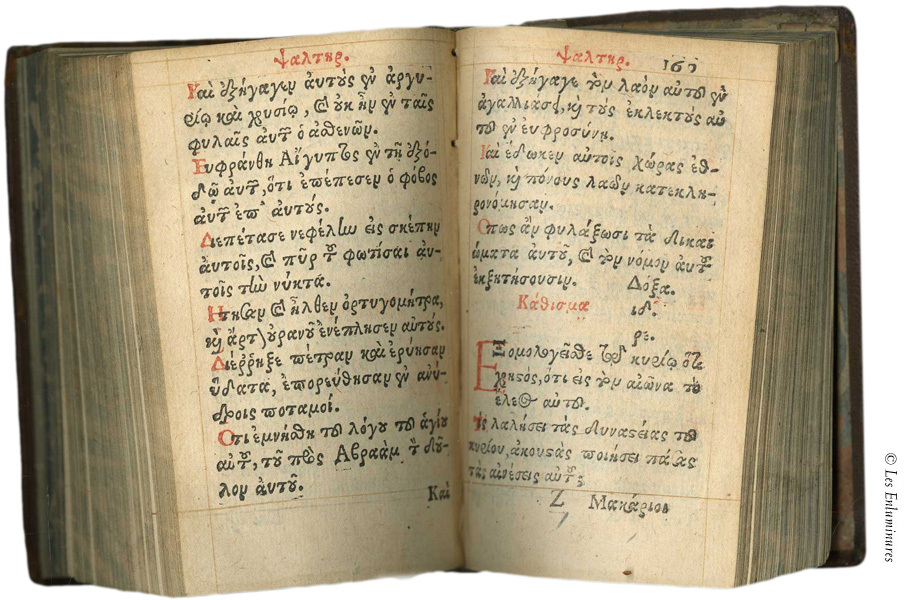 Ψαλτηρ.
Καὶ ἐξήγαγεν αὐτοὺς ἐν ἀργυ-
ρίῳ καὶ χρυσίῳ, καὶ οὐκ ἦν ἐν ταῖς
φυλαῖς αὐτῶν ὁ ἀσθενῶν.
Εὐφράνθη Αἴγυπτος ἐν τῇ ἐξό-
δῳ αὐτῶν, ὅτι ἐπέπεσεν ὁ φόβος
αὐτῶν ἐπ' αὐτούς.
Διεπέτασε νεφέλην εἰς σκέπην
αὐτοῖς, καὶ πῦρ τοῦ φωτίσαι αὐ-
τοῖς τὴν νύκτα.
Ἤτησαν καὶ ἦλθεν ὀρτυγομήτρα,
καὶ ἄρτον οὐρανοῦ ἐνέπλησεν αὐτούς.
Διέῤῥηξε πέτραν καὶ ἐρύησαν
ὕδατα, ἐπορεύθησαν ἐν ἀνύ-
δροις ποταμοί.
Ὅτι ἐμνήσθη τοῦ λόγου τοῦ ἁγίου
αὐτοῦ, τοῦ πρὸς Αβραὰμ τὸν δοῦ-
λον αὐτοῦ.
Καὶ
Ψαλτηρ.
Καὶ ἐξήγαγε τὸν λαὸν αὐτοῦ ἐν
ἀγαλλιάσει, καὶ τοὺς ἐκλεκτοὺς αὐ
τοῦ ἐν εὐφροσύνῃ.
Καὶ ἔδωκεν αὐτοῖς χώρας ἐθ-
νῶν, καὶ πόνους λαῶν κατεκλη-
ρονόμησαν.
Ὅπως ἂν φυλάξωσι τὰ δικαι
ώματα αὐτοῦ, καὶ τὸν νόμον αὐτοῦ
ἐκζητήσουσιν. Δόξα.
Κάθισμα ιδ.
ρε.
Ἐξομολογεῖσθε τῷ κυρίῳ ὅτι
χρηστός, ὅτι εἰς τὸν αἰῶνα τὸ
ἔλεος αὐτοῦ.
Τίς λαλήσει τὰς δυναστείας τοῦ
κυρίου, ἀκουστὰς ποιήσει πάσας
τὰς αἰνέσεις αὐτοῦ;
Z Μακάριοι
© Les Enluminures